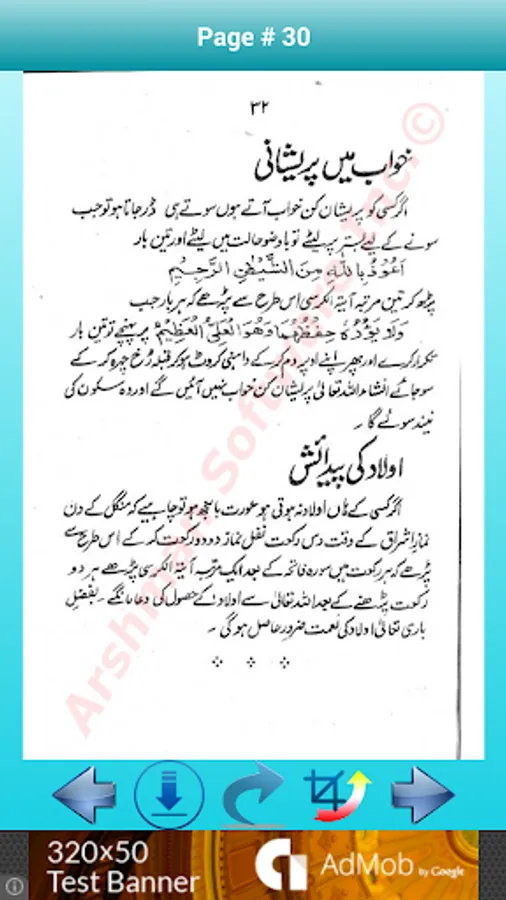 Page # 30
۳۲
خواب میں پریشانی
اگر کسی کو پریشان کن خواب آتے ہوں سوتے ہی ڈر جاتا ہو تو جب
سونے کے لیے بستر پر لیٹے تو باوضو حالت میں لیٹے اور تین بار
اَعُوْذُ بِاللّٰهِ مِنَ الشَّيْطٰنِ الرَّجِيْمِ
پڑھ کر تین مرتبہ آیۃ الکرسی اس طرح سے پڑھے کہ ہر بار جب
وَلَا يَؤُدُهٗ حِفْظُهُمَا وَهُوَ الْعَلِيُّ الْعَظِيْمُ پر پہنچے تو تین بار
تکرار کرے اور پھر اپنے اوپر دم کر کے داہنی کروٹ ہو کر قبلہ رخ چہرہ کر کے
سو جائے انشاء اللہ تعالیٰ پریشان کن خواب نہیں آئیں گے اور وہ سکون کی
نیند سوئے گا ۔
اولاد کی پیدائش
اگر کسی کے ہاں اولاد نہ ہوتی ہو عورت بانجھ ہو تو چاہیے کہ منگل کے دن
نماز اشراق کے وقت دس رکعت نفل نماز دو دو رکعت کر کے اس طرح سے
پڑھے کہ ہر رکعت میں سورہ فاتحہ کے بعد ایک مرتبہ آیۃ الکرسی پڑھے ہر دو
رکعت پڑھنے کے بعد اللہ تعالیٰ سے اولاد کے حصول کی دعا مانگے ۔ بفضل
باری تعالیٰ اولاد کی نعمت ضرور حاصل ہو گی ۔
Arshman Software Inc.©
320×50
Test Banner
AdMob by Google